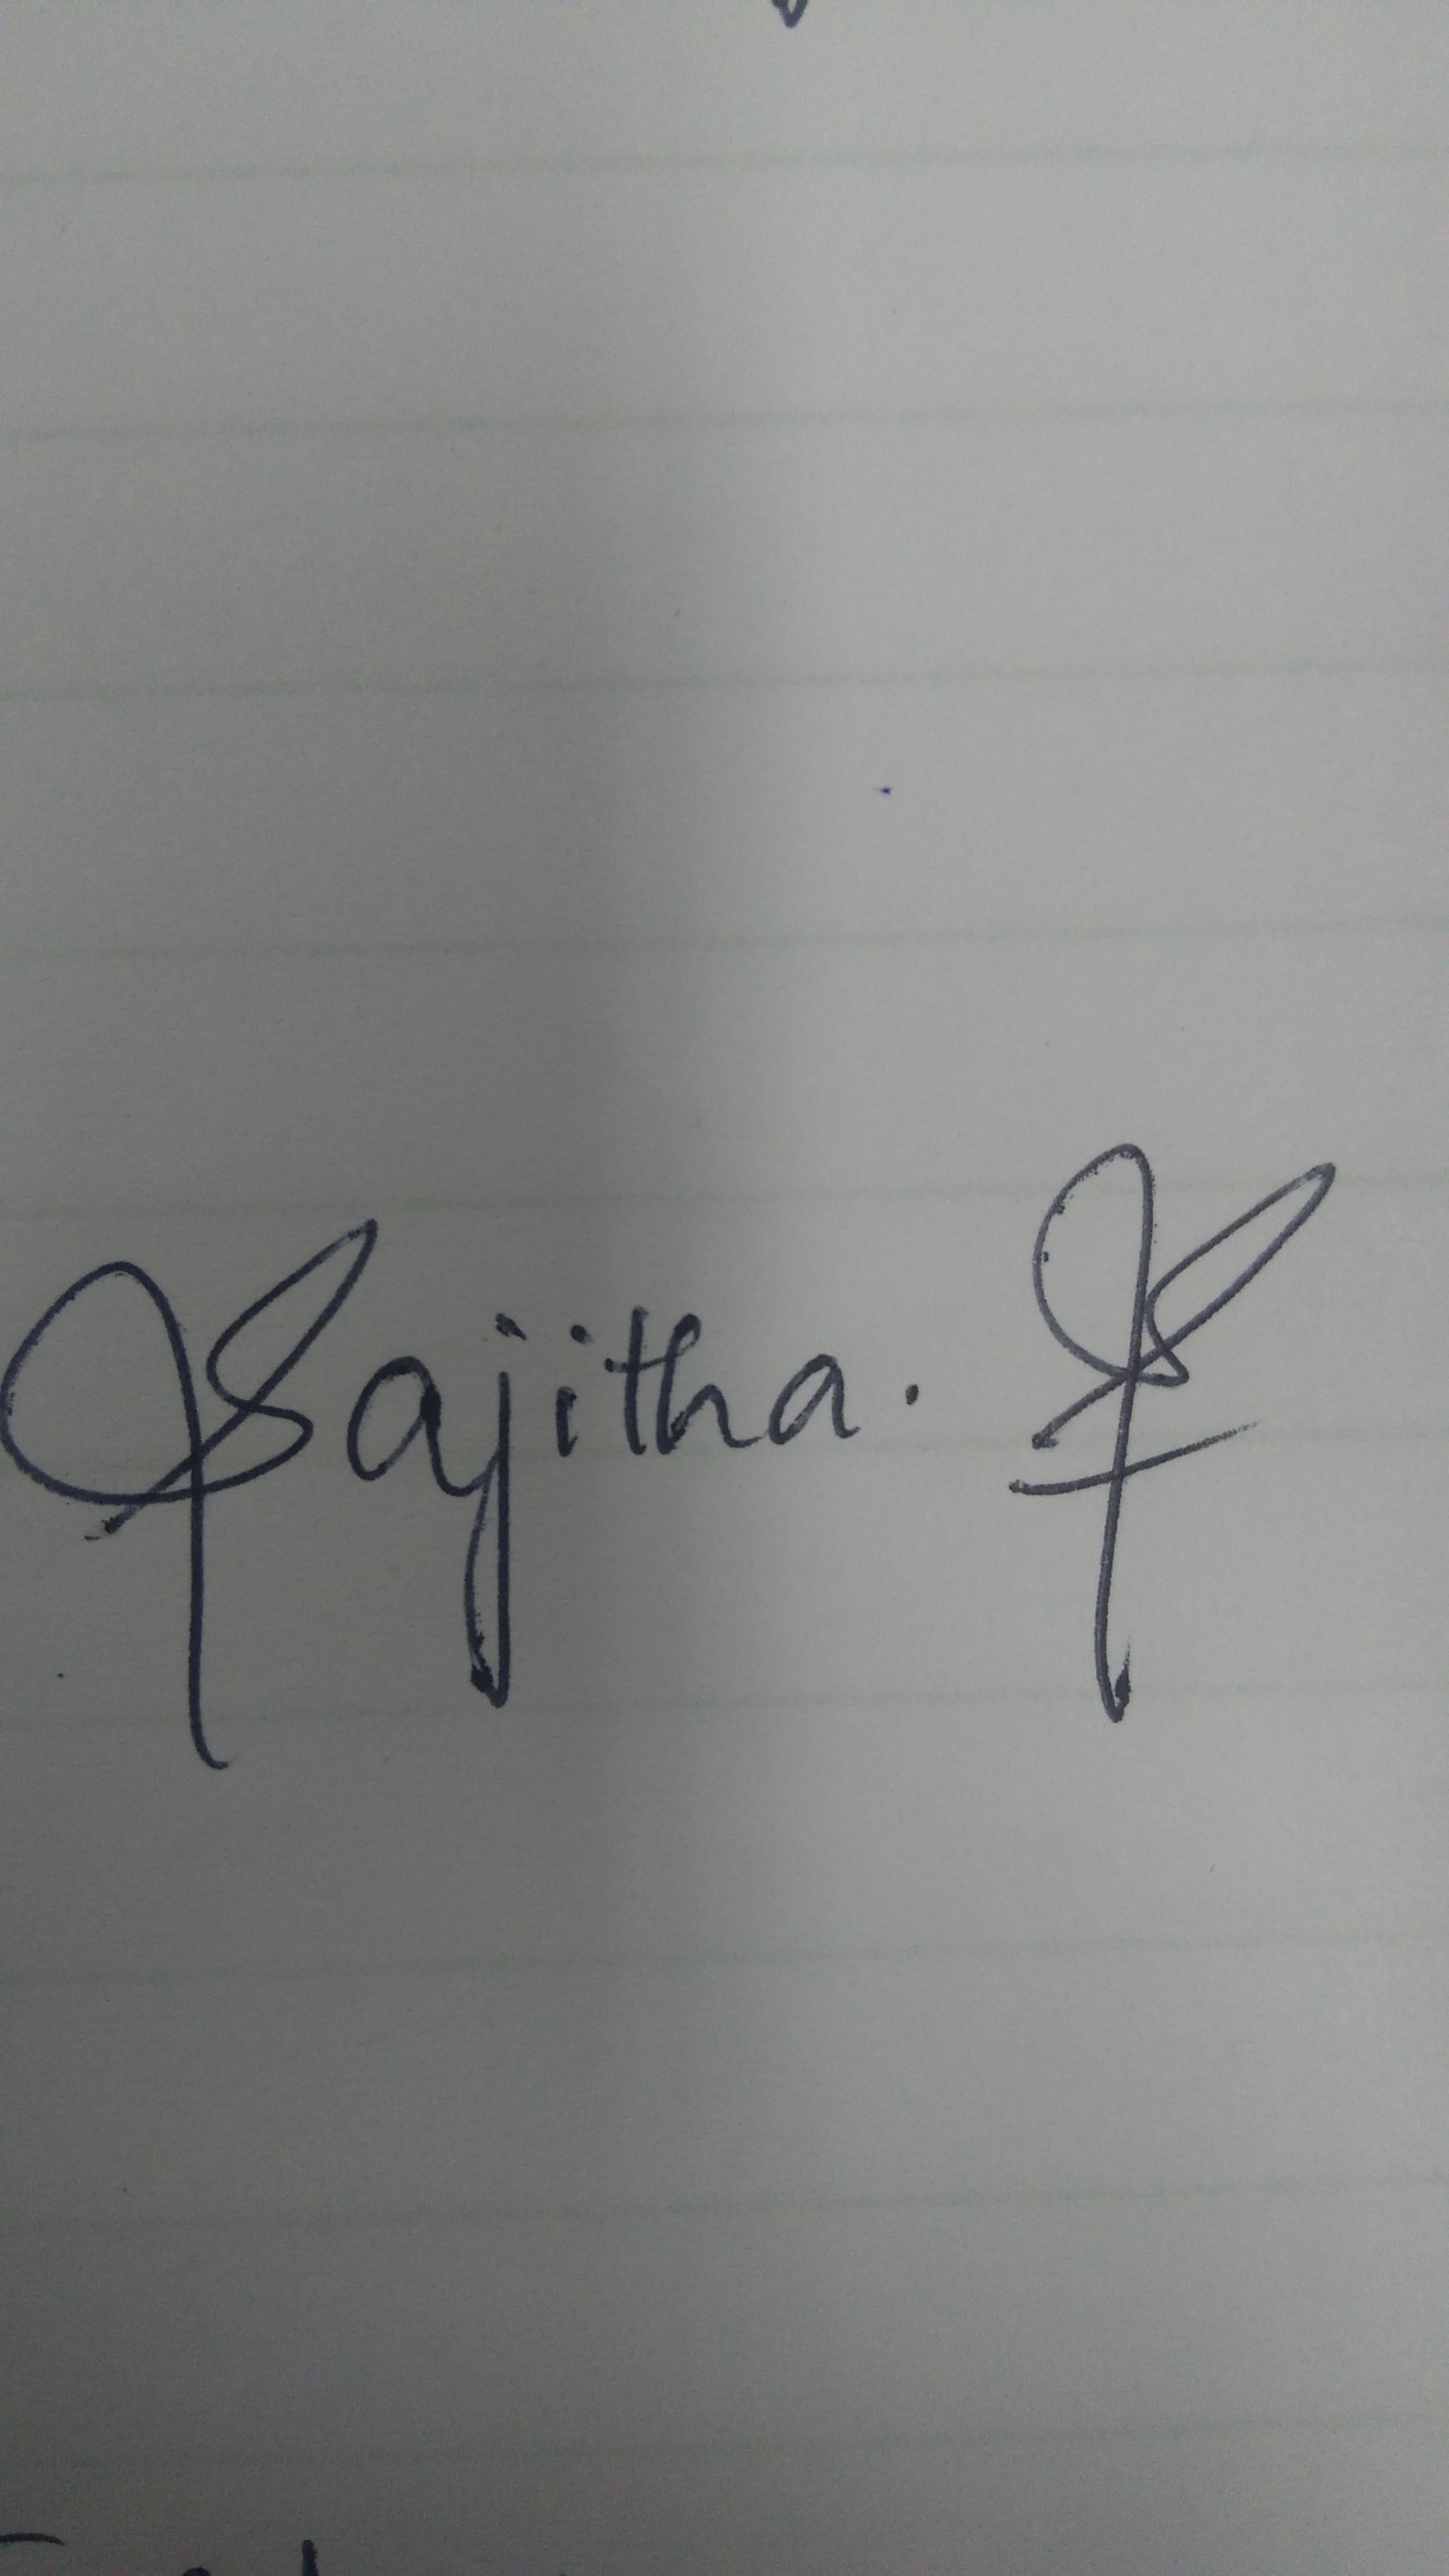 Sajitha. S